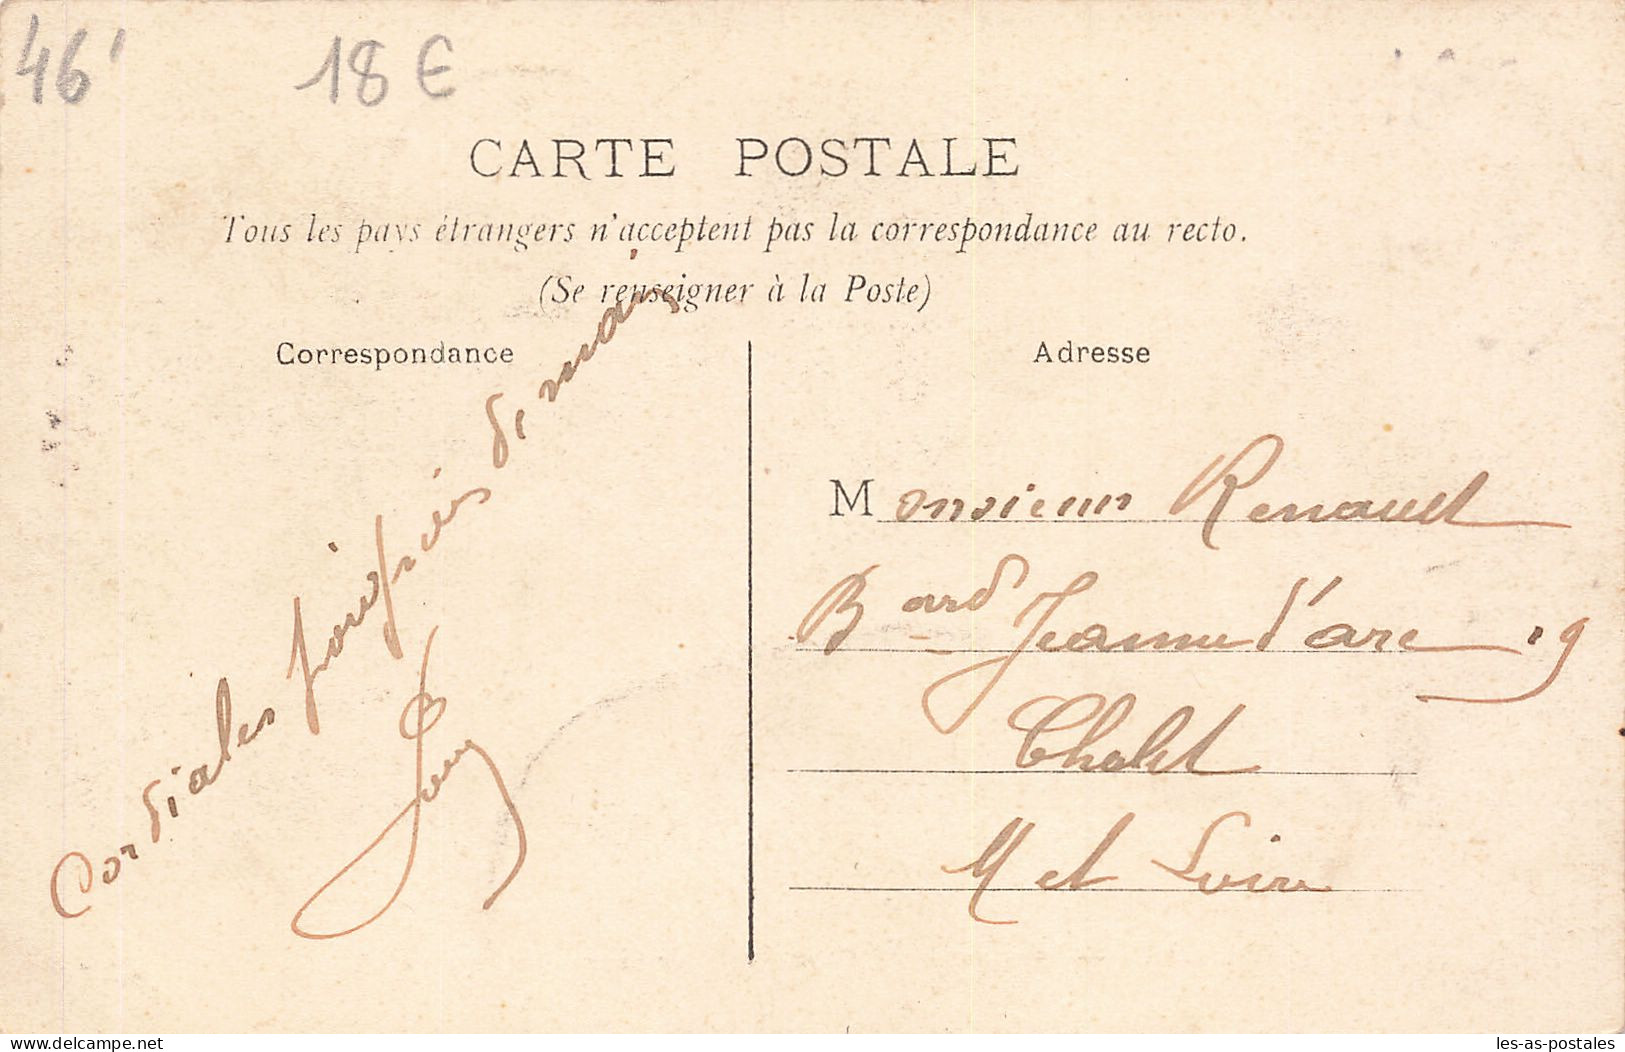 46'
18 €
CARTE POSTALE
Tous les pays étrangers n'acceptent pas la correspondance au recto.
(Se renseigner à la Poste)
Correspondance
Adresse
Cordiales
de main
Monsieur Renault
Bard Jeanne d'arc 19
Cholet
M et Loire
delcampe.net
les-as-postales